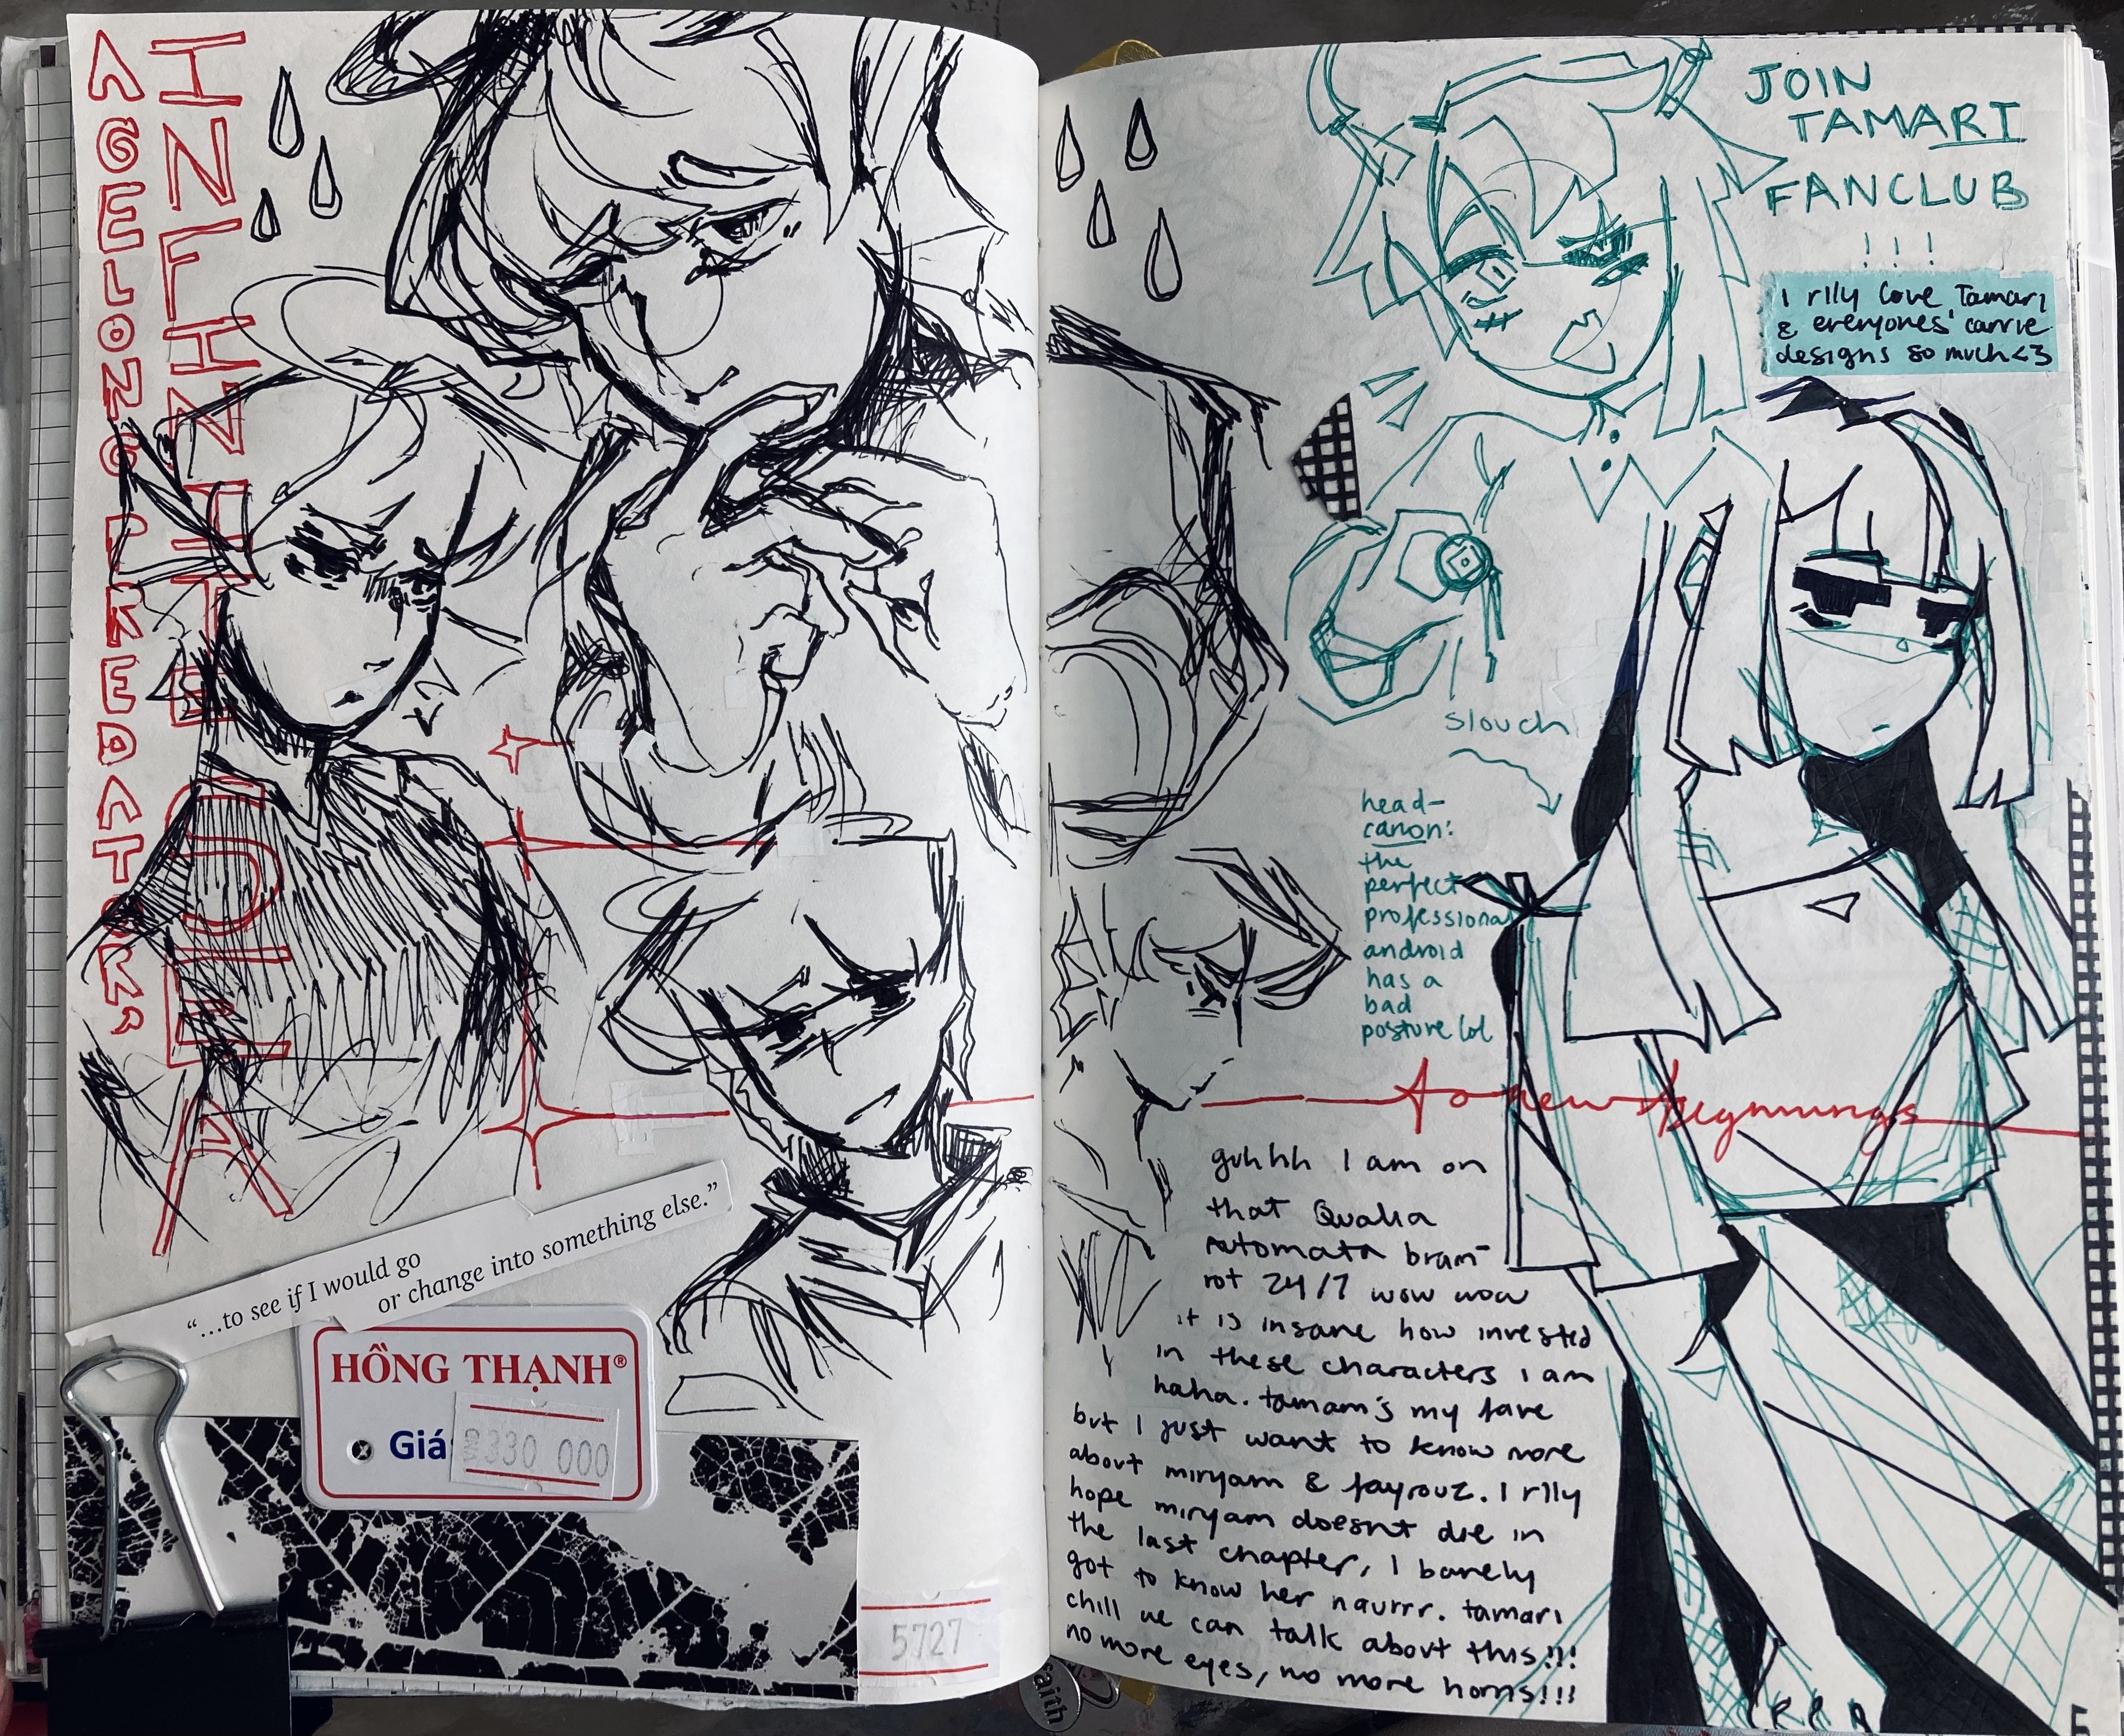 AGELONG PREDATOR,
INFINITE SEA
"...to see if I would go
or change into something else."
HỒNG THẠNH®
Giá
VND
330 000
5727
JOIN
TAMARI
FANCLUB
!!!
I rlly love Tamari
& everyones' carrie
designs so much <3
slouch
head-
canon:
the
perfect
professional
android
has a
bad
posture lol
to new beginnings
guhhh I am on
that Qualia
Automata brain-
rot 24/7 wow wow
it is insane how invested
in these characters I am
haha. tamari's my fave
but I just want to know more
about miryam & fayrouz. I rlly
hope miryam doesnt die in
the last chapter, I barely
got to know her naurrr. tamari
chill we can talk about this!!!
no more eyes, no more horns!!!
aith